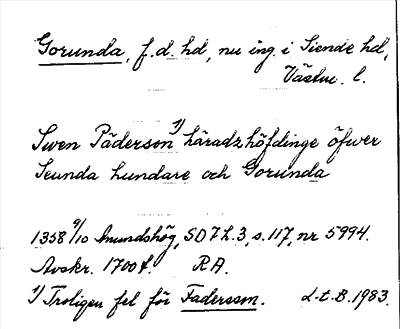 Gorunda, f.d. hd, nu ing. i Siende hd,
Västm. l.
Swen Päderson 1) häradzhöfdinge öfwer
Seunda hundare och Gorunda
1358 9/10 Anundshög, SD 7 h. 3, s. 117, nr 5994.
Avskr. 1700t. RA.
1) Troligen fel för Fadersson. L-E.B. 1983.